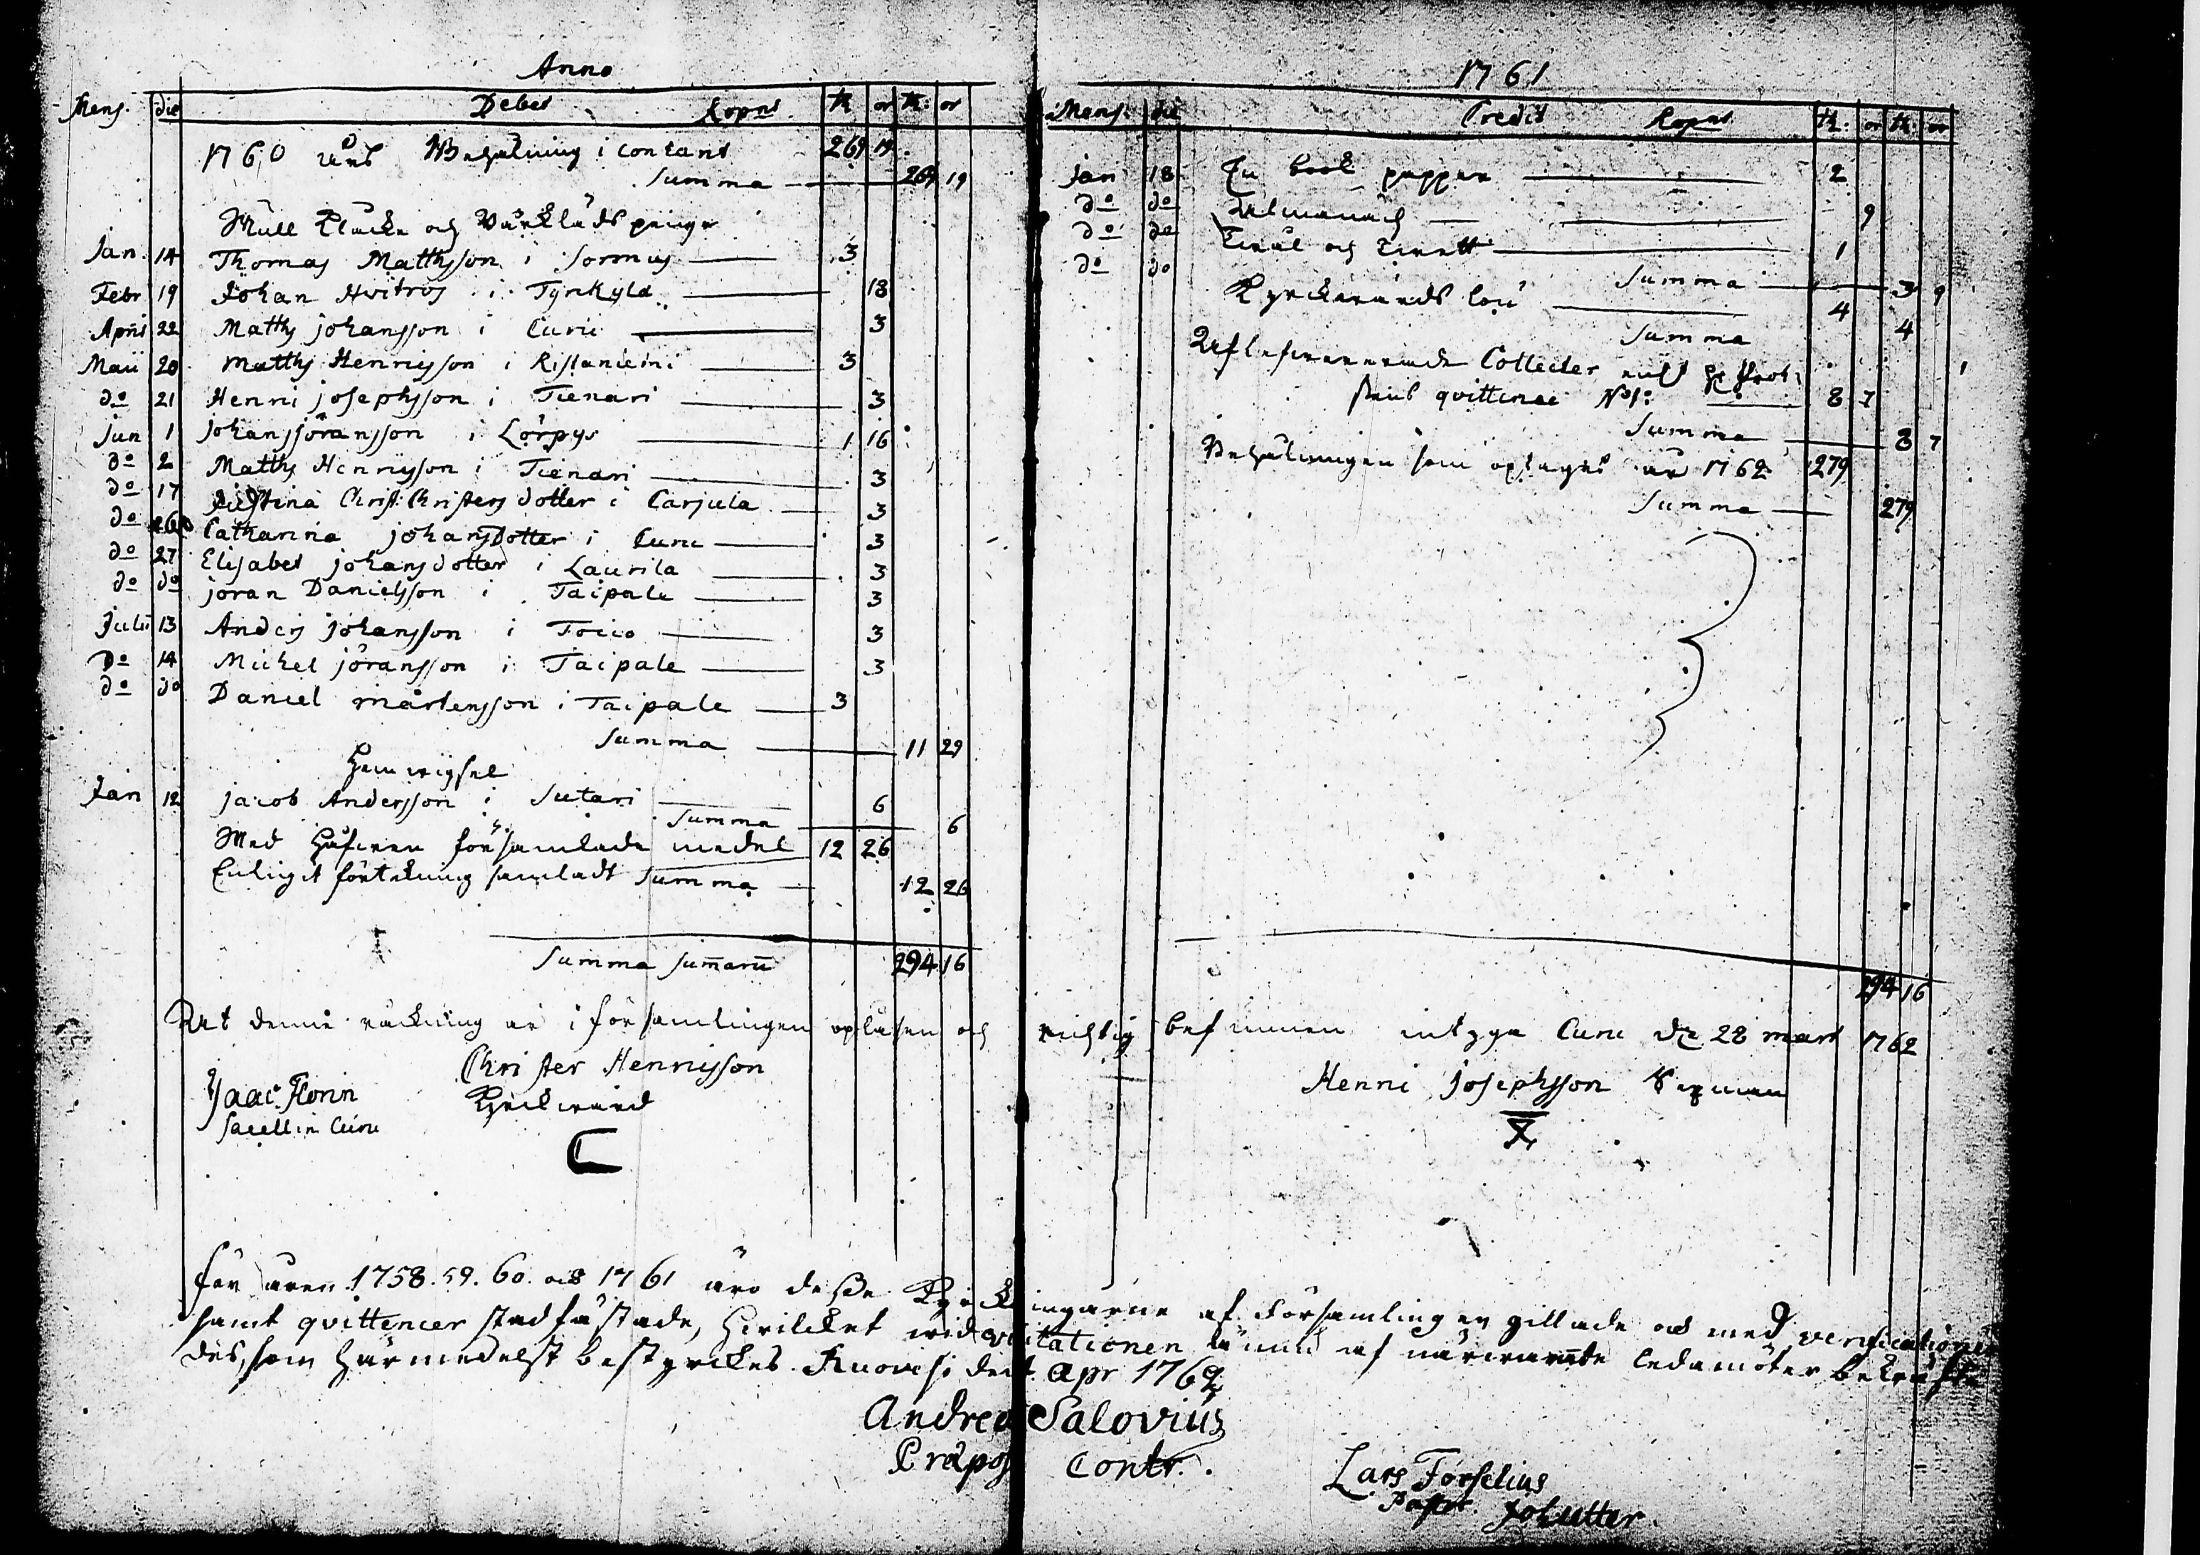 Anno
Mens. die Debet Kopnt tlr or tlr or
1760 åhrs Behålning i contant 269 19
Summa 269 19
Mull Klocke och Bårklädspenga
Jan. 14 Thomas Mattsson i Sormus 3
Febr 19 Johan Hvitros i Tyrkylä 18
April 22 Matths johansson i Curu 3
Maii 20 Matths Henricsson i Ristaniemi 3
do 21 Henric josephsson i Tienari 3
Jun 1 johan jöransson i Lörpys 1 16
do 2 Matths Henricsson i Tienari 3
do 17 Christina Christersdotter i Carjula 3
do 26 Catharina johansdotter i Curu 3
do 27 Elisabet johansdotter i Laurila 3
do do jöran Danielsson i Taipale 3
Julii 13 Anders johansson i Toico 3
do 14 Michel jöransson i Taipale 3
do do Daniel mårtensson i Taipale 3
Summa 11 29
Hemvigsel
Jan 12 jacob Andersson i Sutari 6
Summa 6
Med Håfven församlade medel 12 26
Enligit förtekning samladt Summa 12 26
Summa sumarum 294 16
1761
Mens. die Credit Kopnt tlr: or tlr: or
Jan 18 En book papper 2
do do Almanach 9
do do 1
Summa 3 9
do do Kyrckiovärds lön 4
Summa 4
Aflefvererade Collecter enl: Hr Prob:
stens qvittence No 1: 8 7
Summa 8 7
Behålningen som optages åhr 1762 279
Summa 279
294 16
At denne räckning är i församlingen opläsen och richtig befunnen intyga Curu d: 28 mart 1762
Isaac Florin
Sacell in Curu
Christer Henricsson
Kyrckvärd
Henric josephsson Sexman
för åren 1758. 59. 60. och 1761 äro desse Räckningarne af Församlingen gillade och med verificationer
samt qvittencer stadfästade, hvilcket wid visitationen ännu af närvarande ledamöter bekräfta-
des, som härmedelst bestyrckes. Ruovesi den Apr 1762
Andreas Salovius
Præpos Contr.
Lars Forselius
Past